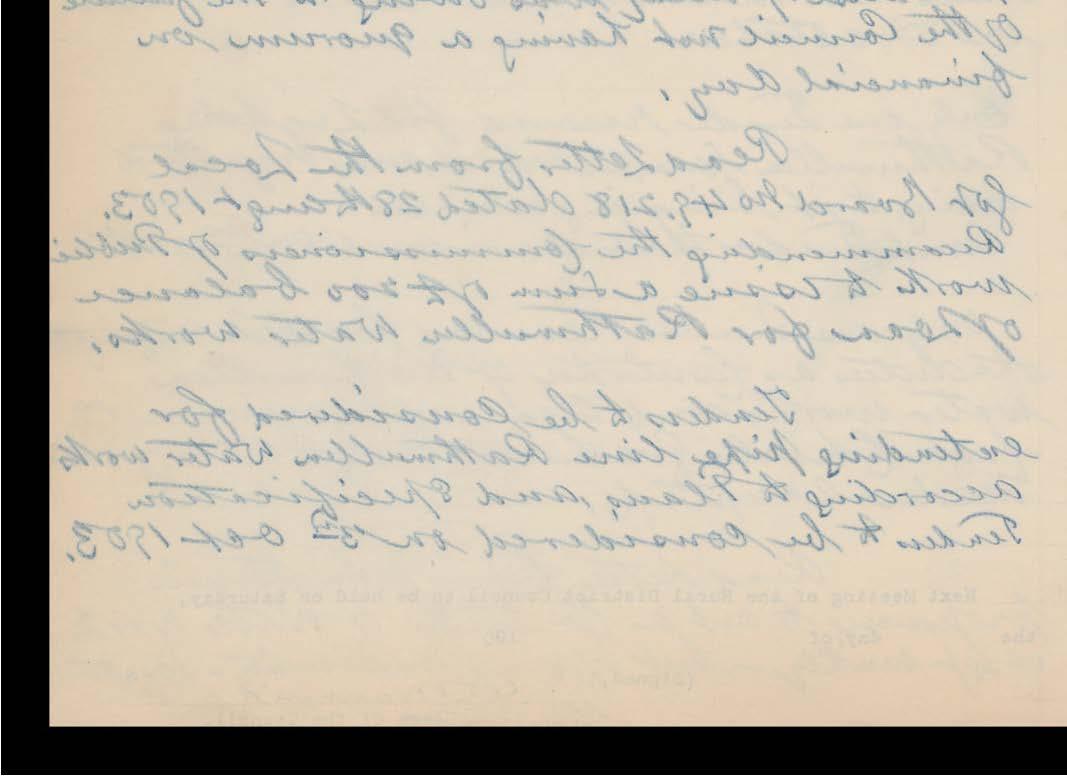 of the Council not having a quorum on
financial day.
Read Letter from the Local
Gov Board No 49.218 dated 28th augt 1903.
Recommending the Commissioners of Public
work to issue a sum of £200 balance
of Loans for Rathmullen Water works.
Tenders to be Considered for
extending pipe line Rathmullen Water works
according to Plans, and Specification
Tenders to be Considered on 3rd Oct 1903.
Next Meeting of the Rural District Council to be held on Saturday,
the day of 190
(Signed,)
of the Council.